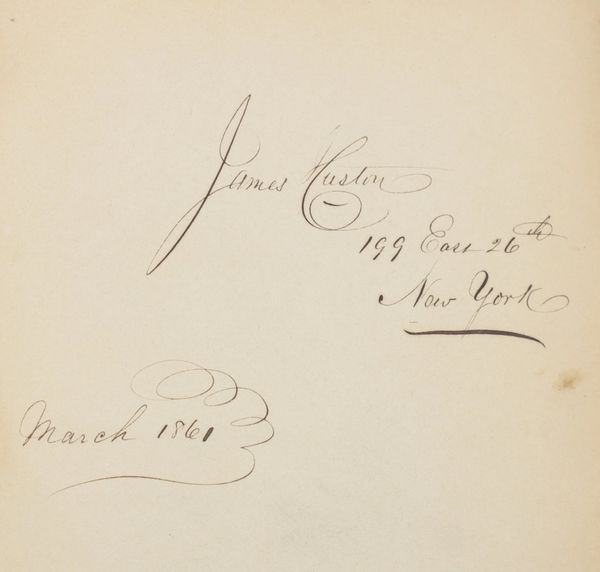 James Huston
199 East 26th
New York
March 1861